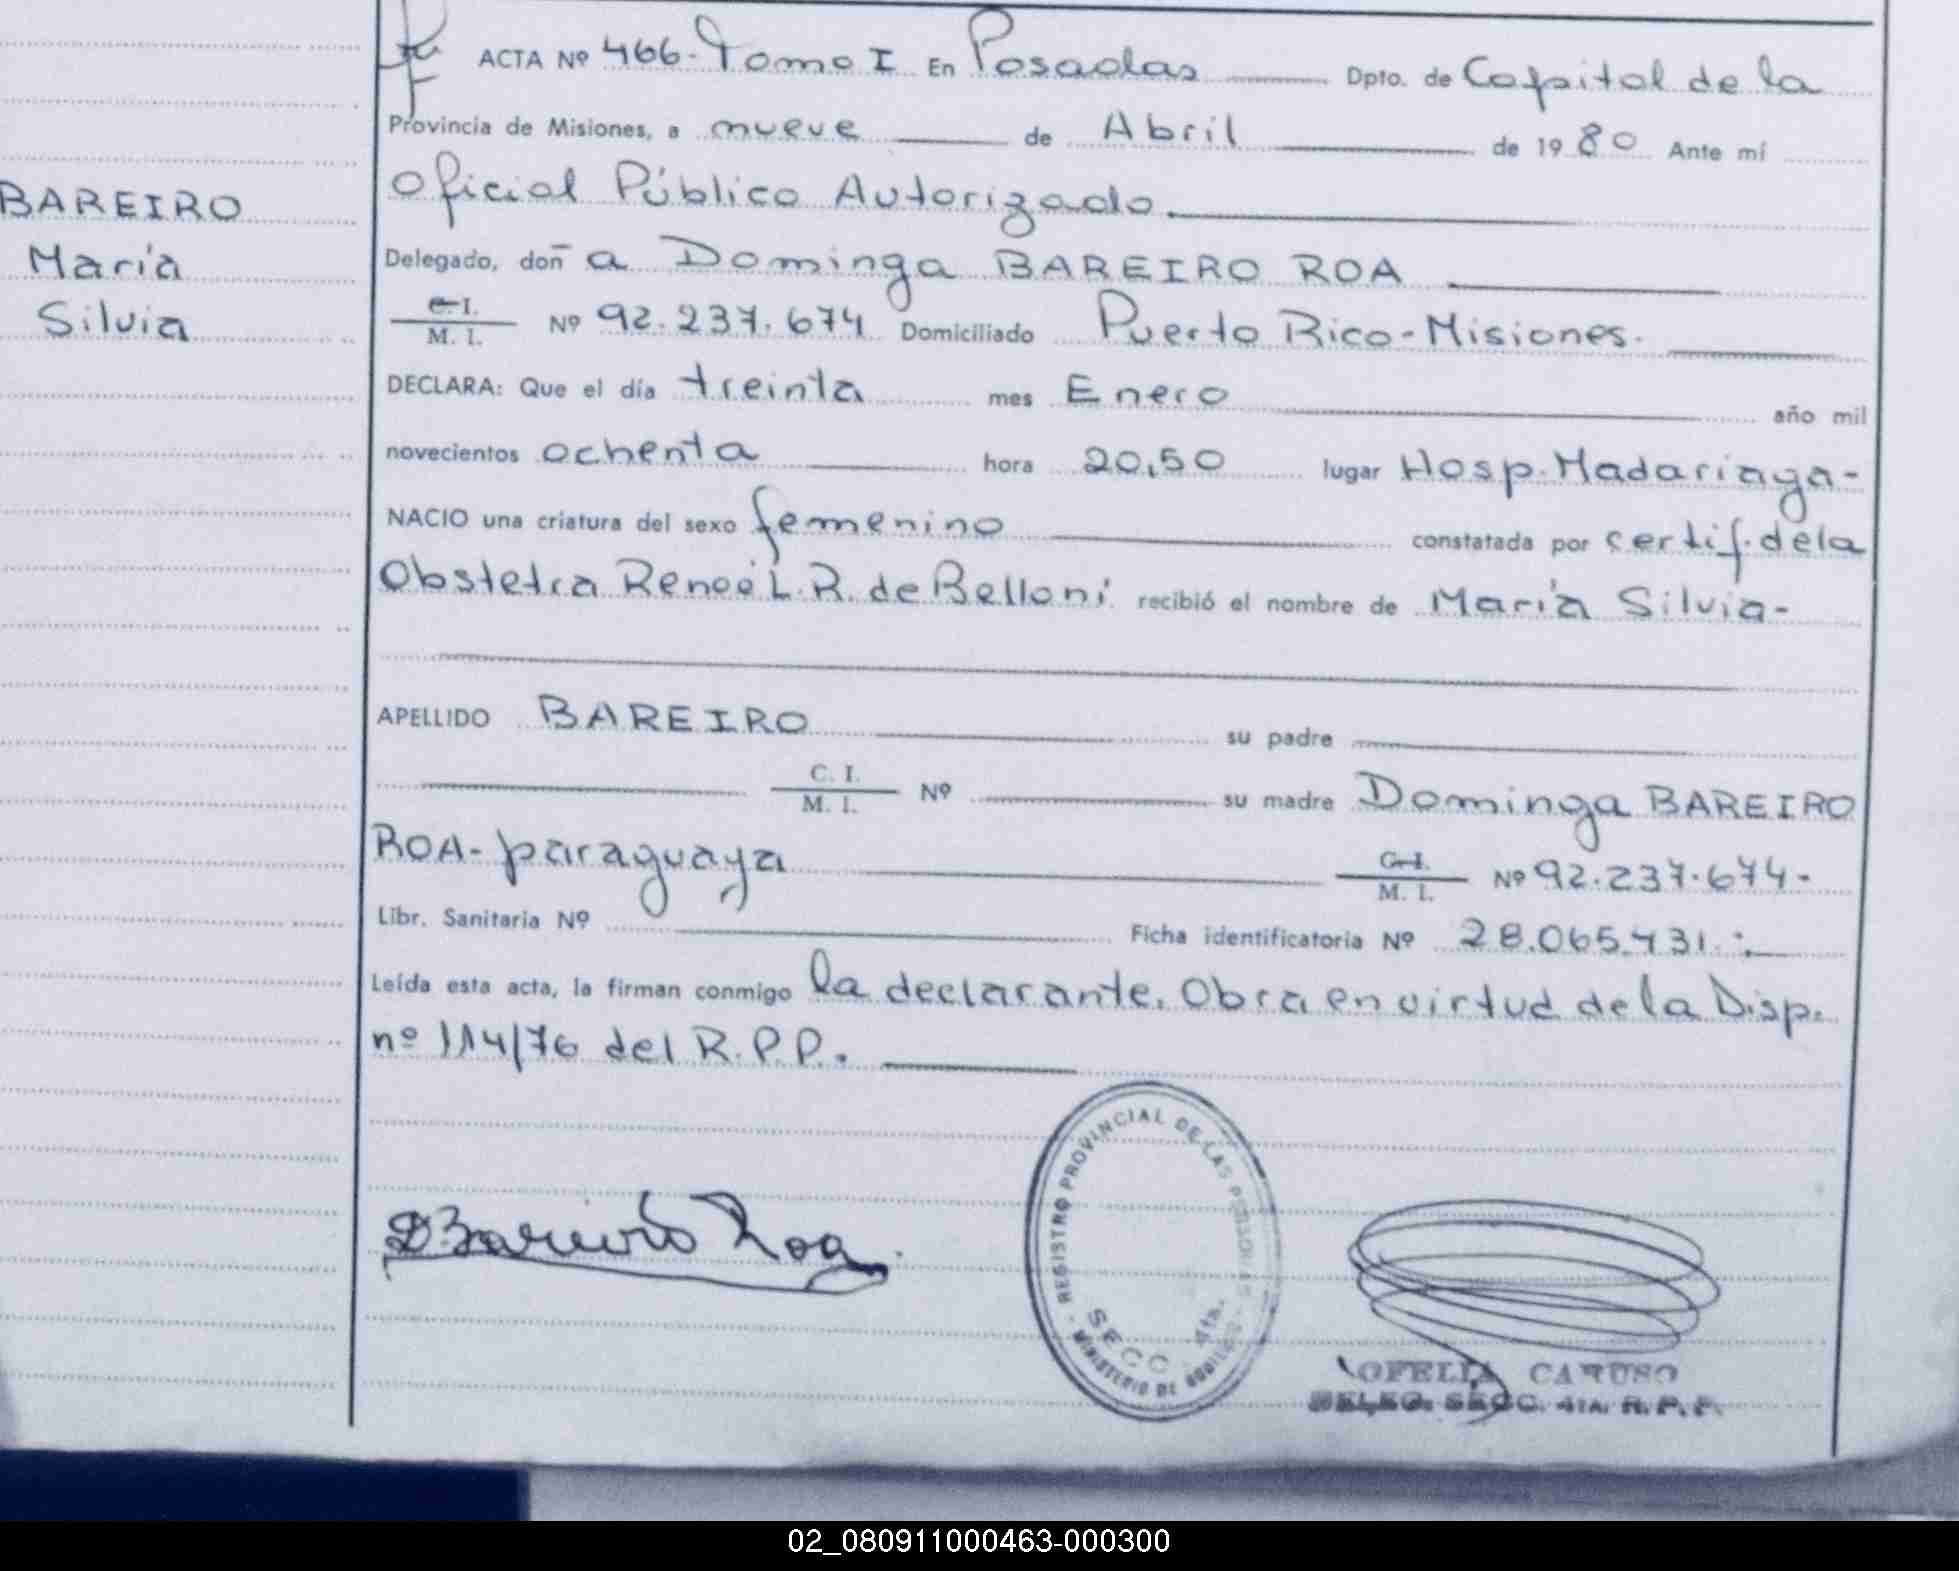 ACTA Nº 466- Tomo I En Posadas Dpto. de Capital de la
Provincia de Misiones, a nueve de Abril de 1980 Ante mí
Oficial Público Autorizado.
BAREIRO
María
Silvia
Delegado, don̄a Dominga BAREIRO ROA
C.I. / M. I. Nº 92.237.674 Domiciliado Puerto Rico-Misiones.
DECLARA: Que el día treinta mes Enero año mil
novecientos ochenta hora 20,50 lugar Hosp. Madariaga-
NACIO una criatura del sexo femenino constatada por certif. de la
Obstetra Reneé L. R. de Belloni recibió el nombre de María Silvia-
APELLIDO BAREIRO su padre
C. I. / M. I. Nº su madre Dominga BAREIRO
ROA- paraguaya C.I. / M. I. Nº 92.237.674.
Libr. Sanitaria Nº Ficha identificatoria Nº 28.065.431.
Leída esta acta, la firman conmigo la declarante. Obra en virtud de la Disp.
nº 114/76 del R.P.P.
D Bareiro Roa
REGISTRO PROVINCIAL DE LAS PERSONAS
SECC. 4ta.
MINISTERIO DE GOBIERNO
OFELIA CARUSO
DELEG. SECC. 4TA. R.P.P.
02_080911000463-000300